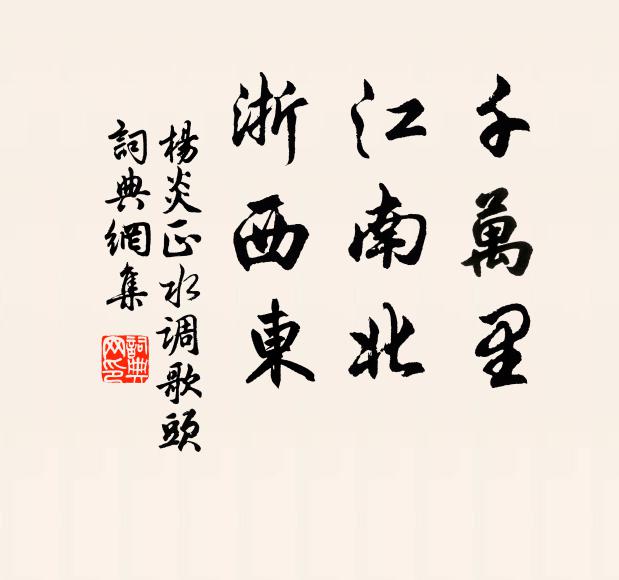 千萬里
江南北
浙西東
楊炎正水调歌頭
詞典網集
詞典网印